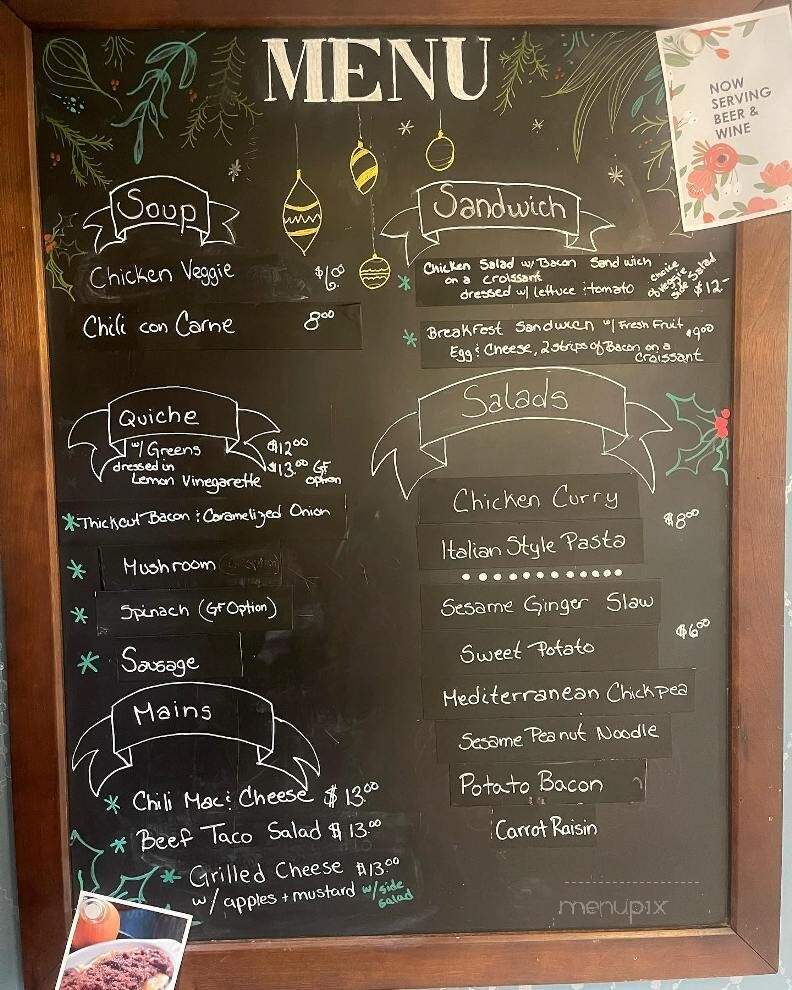 MENU
NOW
SERVING
BEER &
WINE
Soup
Chicken Veggie $6.00
Chili con Carne 8.00
Sandwich
Chicken Salad w/ Bacon Sandwich
on a croissant
dressed w/ lettuce & tomato
choice
of veggie
side Salad
$12-
Breakfest Sandwich w/ Fresh Fruit $9.00
Egg & Cheese, 2 strips of Bacon on a
Croissant
Quiche
w/ Greens $12.00
dressed in $13.00 GF
Lemon Vinegarette option
Thickcut Bacon & Caramelized Onion
Mushroom
Spinach (GF Option)
Sausage
Mains
Chili Mac & Cheese $13.00
Beef Taco Salad $13.00
Grilled Cheese $13.00
w/ apples + mustard w/side
salad
Salads
Chicken Curry
$8.00
Italian Style Pasta
Sesame Ginger Slaw
$6.00
Sweet Potato
Mediterranean Chickpea
Sesame Peanut Noodle
Potato Bacon
Carrot Raisin
menupix